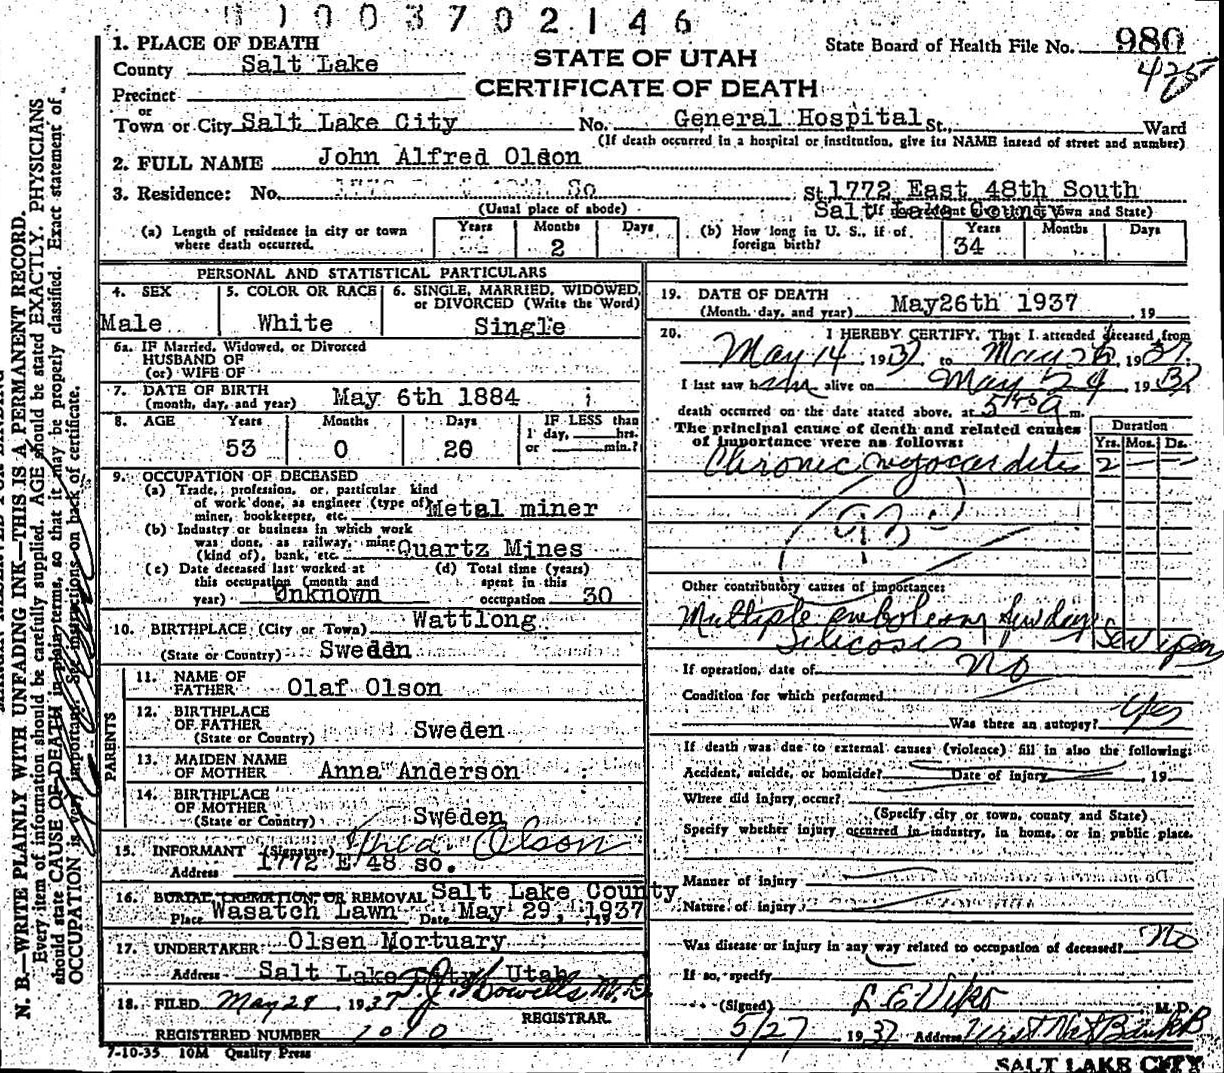 1003702146
State Board of Health File No. 980
425
STATE OF UTAH
CERTIFICATE OF DEATH
1. PLACE OF DEATH
County Salt Lake
Precinct
or
Town or City Salt Lake City No. General Hospital St., Ward
(If death occurred in a hospital or institution, give its NAME instead of street and number)
2. FULL NAME John Alfred Olson
3. Residence: No. St. 1772 East 48th South
Salt Lake County
(Usual place of abode) (If Town and State)
(a) Length of residence in city or town where death occurred. Years Months 2 Days
(b) How long in U. S., if of foreign birth? Years 34 Months Days
PERSONAL AND STATISTICAL PARTICULARS
4. SEX Male
5. COLOR OR RACE White
6. SINGLE, MARRIED, WIDOWED, or DIVORCED (Write the Word) Single
6a. IF Married, Widowed, or Divorced
HUSBAND OF
(or) WIFE OF
7. DATE OF BIRTH
(month, day, and year) May 6th 1884
8. AGE Years 53 Months 0 Days 20 IF LESS than
1 day, hrs.
or min.?
9. OCCUPATION OF DECEASED
(a) Trade, profession, or particular kind
of work done, as engineer (type of)
miner, bookkeeper, etc. Metal miner
(b) Industry or business in which work
was done, as railway, mine
(kind of), bank, etc. Quartz Mines
(c) Date deceased last worked at
this occupation (month and
year) Unknown
(d) Total time (years)
spent in this
occupation 30
10. BIRTHPLACE (City or Town) Wattlong
(State or Country) Sweden
PARENTS
11. NAME OF FATHER Olaf Olson
12. BIRTHPLACE
OF FATHER
(State or Country) Sweden
13. MAIDEN NAME
OF MOTHER Anna Anderson
14. BIRTHPLACE
OF MOTHER
(State or Country) Sweden
15. INFORMANT (Signature) Olson
Address 1772 E 48 so.
16. BURIAL, CREMATION, OR REMOVAL Salt Lake County
Place Wasatch Lawn Date May 29, 1937
17. UNDERTAKER Olsen Mortuary
Address Salt Lake City Utah
18. FILED May 29 1937 T. J. Howells M. D.
REGISTRAR.
REGISTERED NUMBER 1010
7-10-35 10M Quality Press
19. DATE OF DEATH
(Month, day, and year) May 26th 1937, 19
20. I HEREBY CERTIFY, That I attended deceased from
May 14 1937 to May 26, 1937.
I last saw him alive on May 24 1937.
death occurred on the date stated above, at 5:45 A m.
The principal cause of death and related causes
of importance were as follows:
Duration
Yrs. Mos. Ds.
Chronic myocarditis 2 — —
Other contributory causes of importance:
Multiple embolism Sunday
Silicosis
If operation, date of no
Condition for which performed
Was there an autopsy? yes
If death was due to external causes (violence) fill in also the following:
Accident, suicide, or homicide? Date of injury, 19
Where did injury occur?
(Specify city or town, county and State)
Specify whether injury occurred in industry, in home, or in public place.
Manner of injury
Nature of injury
Was disease or injury in any way related to occupation of deceased? No
If so, specify
(Signed) L E Viko M. D.
5/27 1937 Address First Nat Bank B
SALT LAKE CITY
N. B.—WRITE PLAINLY WITH UNFADING INK—THIS IS A PERMANENT RECORD.
Every item of information should be carefully supplied. AGE should be stated EXACTLY. PHYSICIANS
should state CAUSE OF DEATH in plain terms, so that it may be properly classified. Exact statement of
OCCUPATION is very important. See instructions on back of certificate.